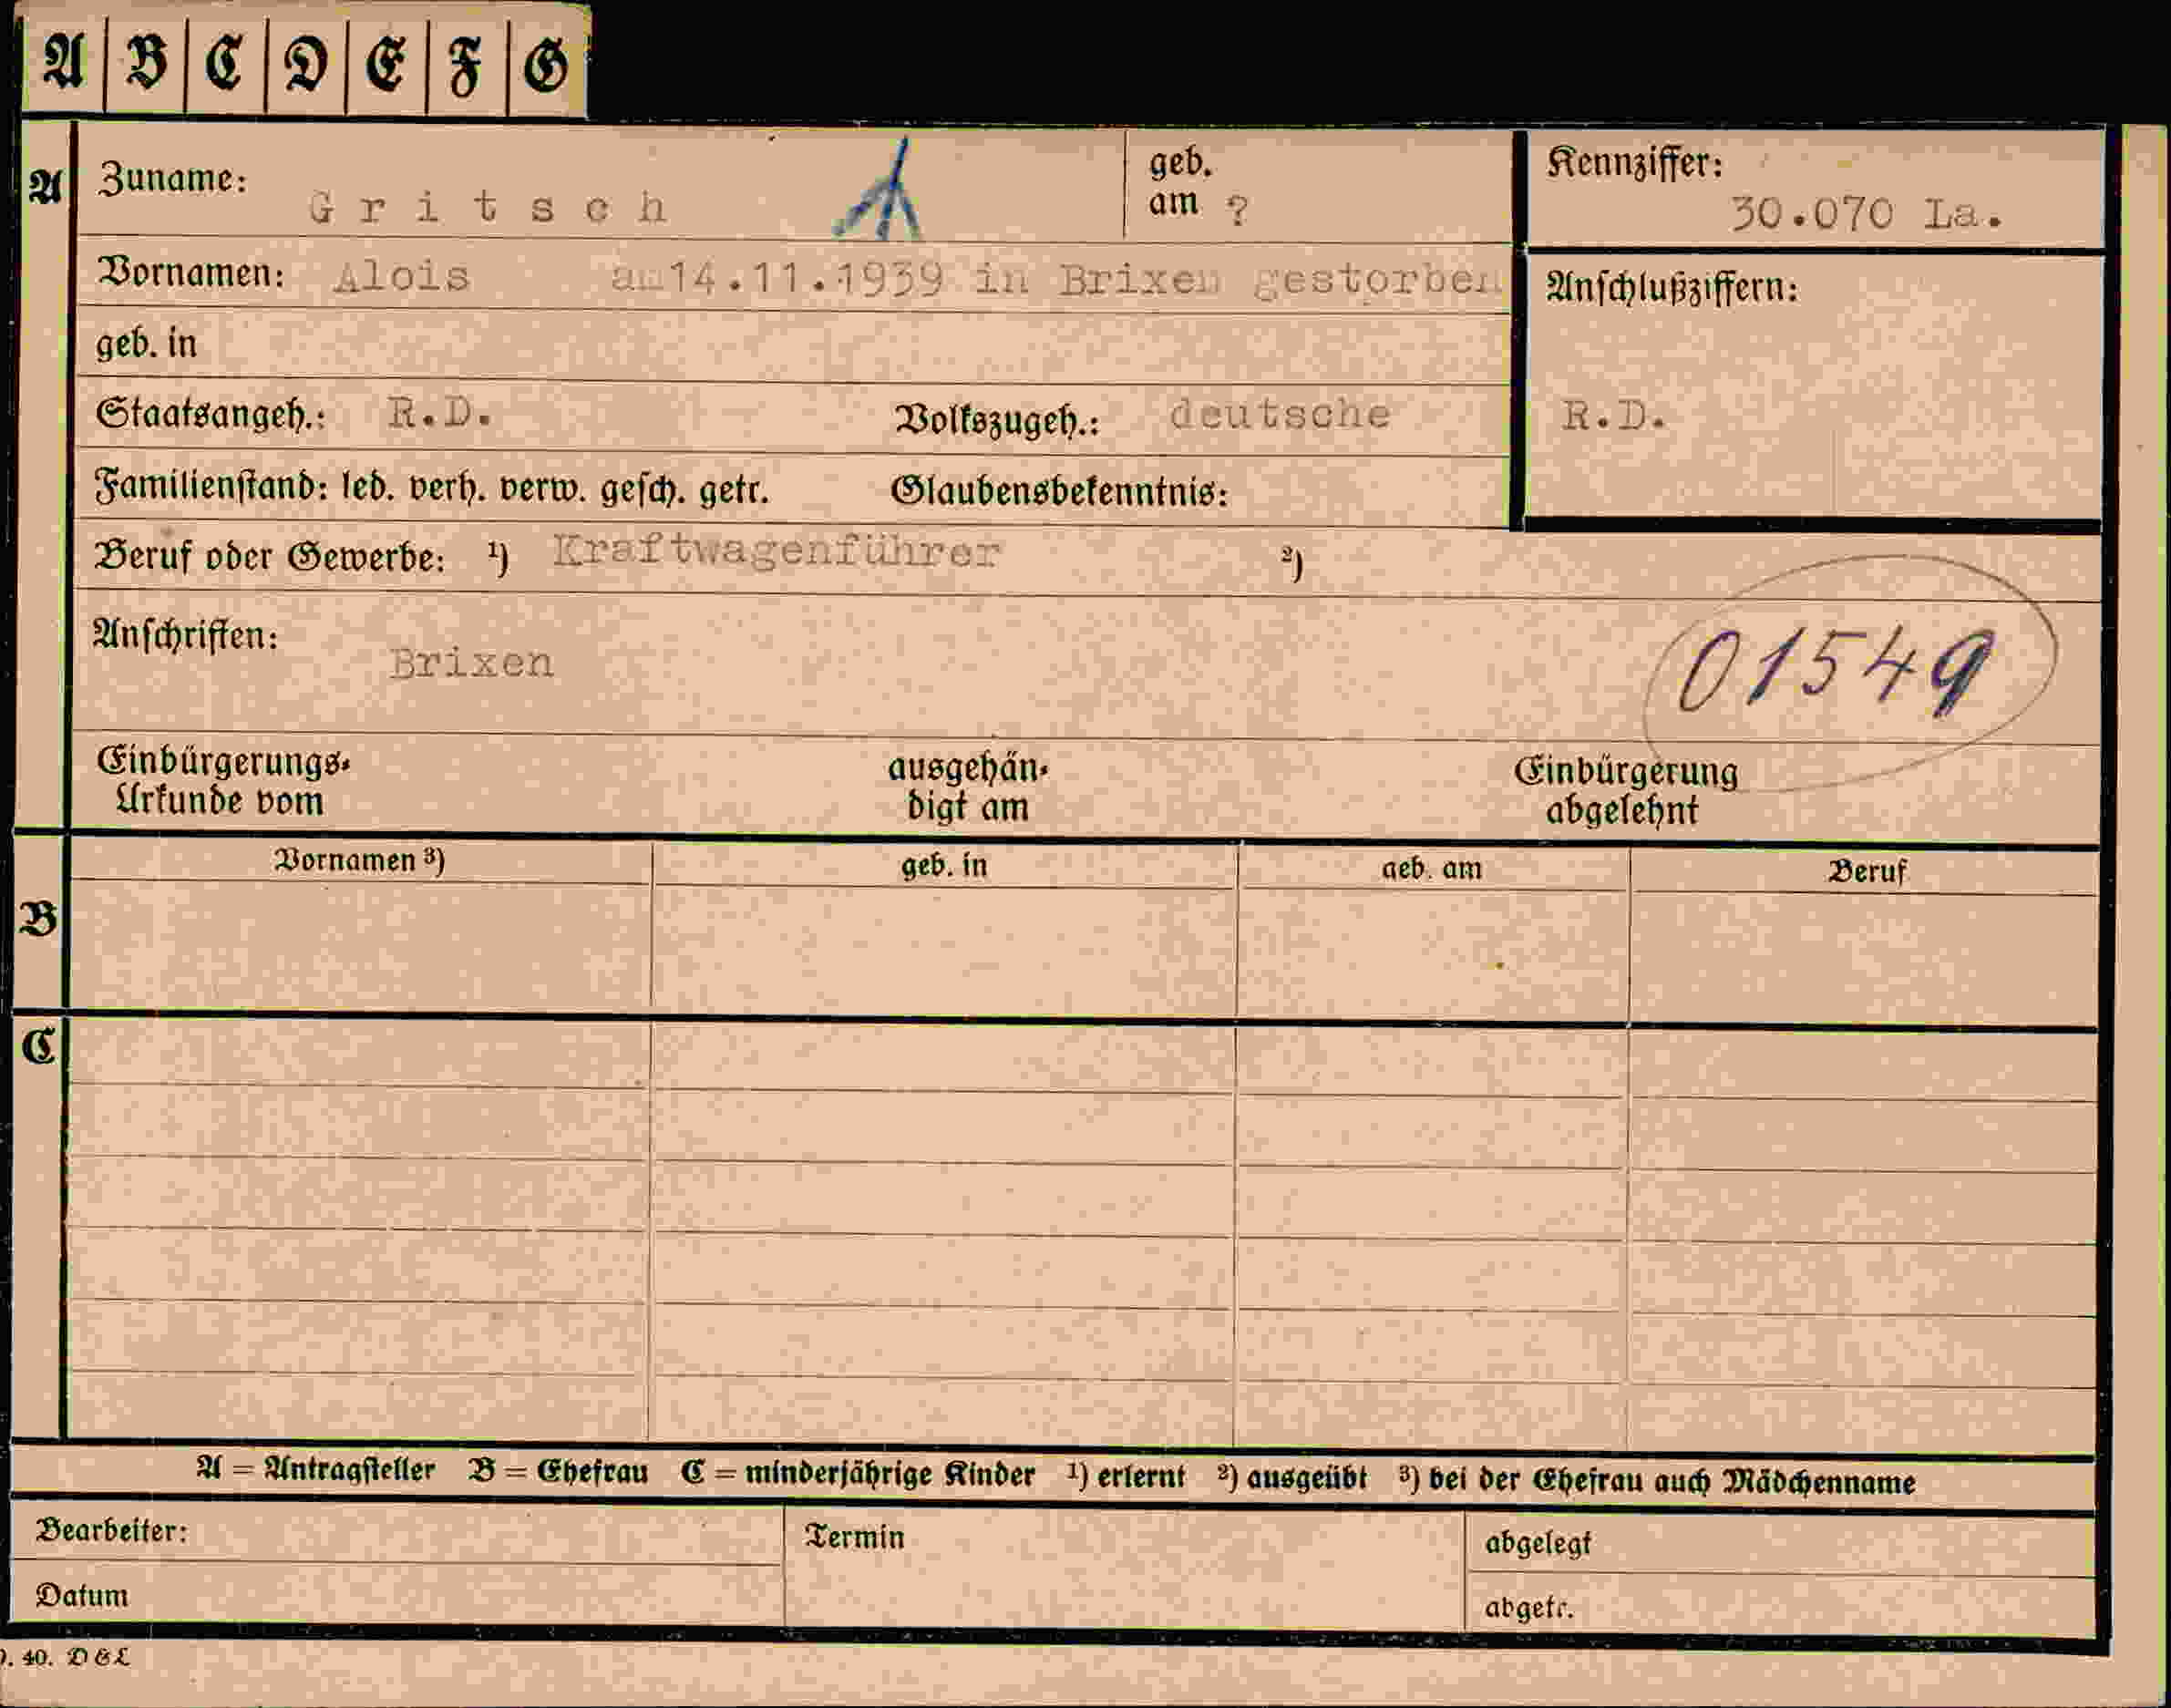 A B C D E F G
A Zuname: Gritsch geb. am ? Kennziffer: 30.070 La.
Vornamen: Alois am 14.11.1939 in Brixen gestorben Anschlußziffern:
geb. in
Staatsangeh.: R.D. Volkszugeh.: deutsche R.D.
Familienstand: led. verh. verw. gesch. getr. Glaubensbekenntnis:
Beruf oder Gewerbe: ¹) Kraftwagenführer ²)
Anschriften: Brixen 01549
Einbürgerungs- ausgehän- Einbürgerung
Urkunde vom digt am abgelehnt
Vornamen ³) geb. in geb. am Beruf
B
C
A = Antragsteller B = Ehefrau C = minderjährige Kinder ¹) erlernt ²) ausgeübt ³) bei der Ehefrau auch Mädchenname
Bearbeiter: Termin abgelegt
Datum abgetr.
40. D & L